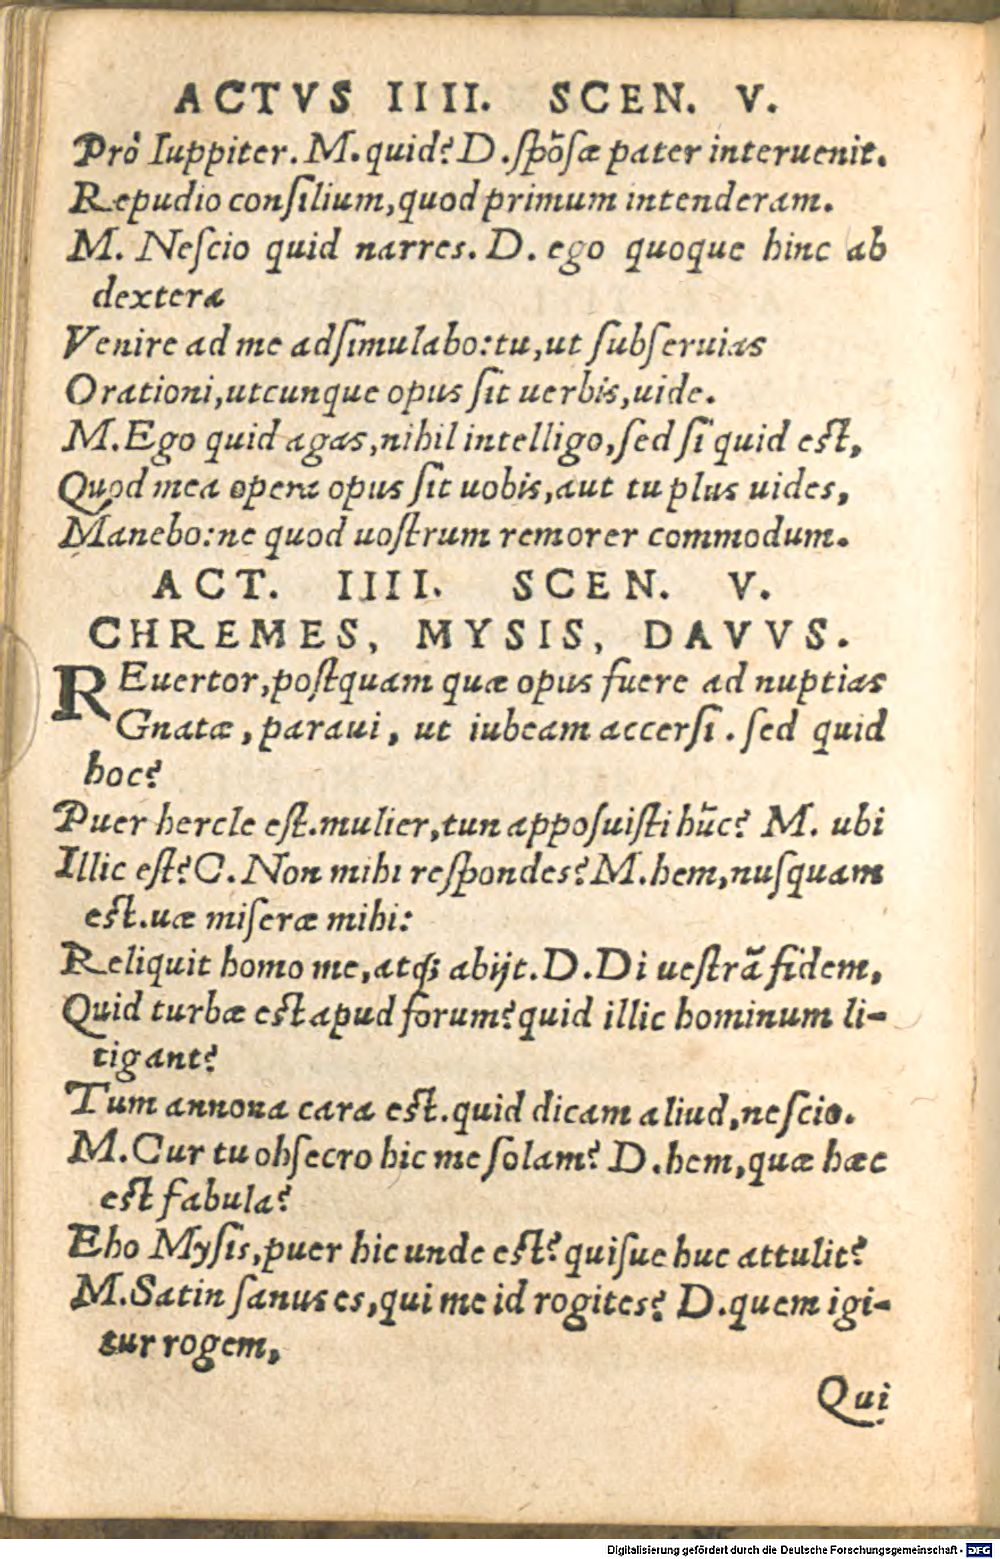 ACTVS IIII. SCEN. V.
Prô Iuppiter. M. quid? D. spõsæ pater interuenit.
Repudio consilium, quod primum intenderam.
M. Nescio quid narres. D. ego quoque hinc ab
dextera
Venire ad me adsimulabo: tu, ut subseruias
Orationi, utcunque opus sit uerbis, uide.
M. Ego quid agas, nihil intelligo, sed si quid est,
Quod mea opera opus sit uobis, aut tu plus uides,
Manebo: ne quod uostrum remorer commodum.
ACT. IIII. SCEN. V.
CHREMES, MYSIS, DAVVS.
REuertor, postquam quæ opus fuere ad nuptias
Gnatæ, paraui, ut iubeam accersi. sed quid
hoc?
Puer hercle est. mulier, tun apposuisti hũc? M. ubi
Illic est? C. Non mihi respondes? M. hem, nusquam
est. uæ miseræ mihi:
Reliquit homo me, atq; abijt. D. Di uestrã fidem,
Quid turbæ est apud forum? quid illic hominum li-
tigant?
Tum annona cara est. quid dicam aliud, nescio.
M. Cur tu obsecro hic me solam? D. hem, quæ hæc
est fabula?
Eho Mysis, puer hic unde est? quisue huc attulit?
M. Satin sanus es, qui me id rogites? D. quem igi-
tur rogem,
Qui
Digitalisierung gefördert durch die Deutsche Forschungsgemeinschaft - DFG